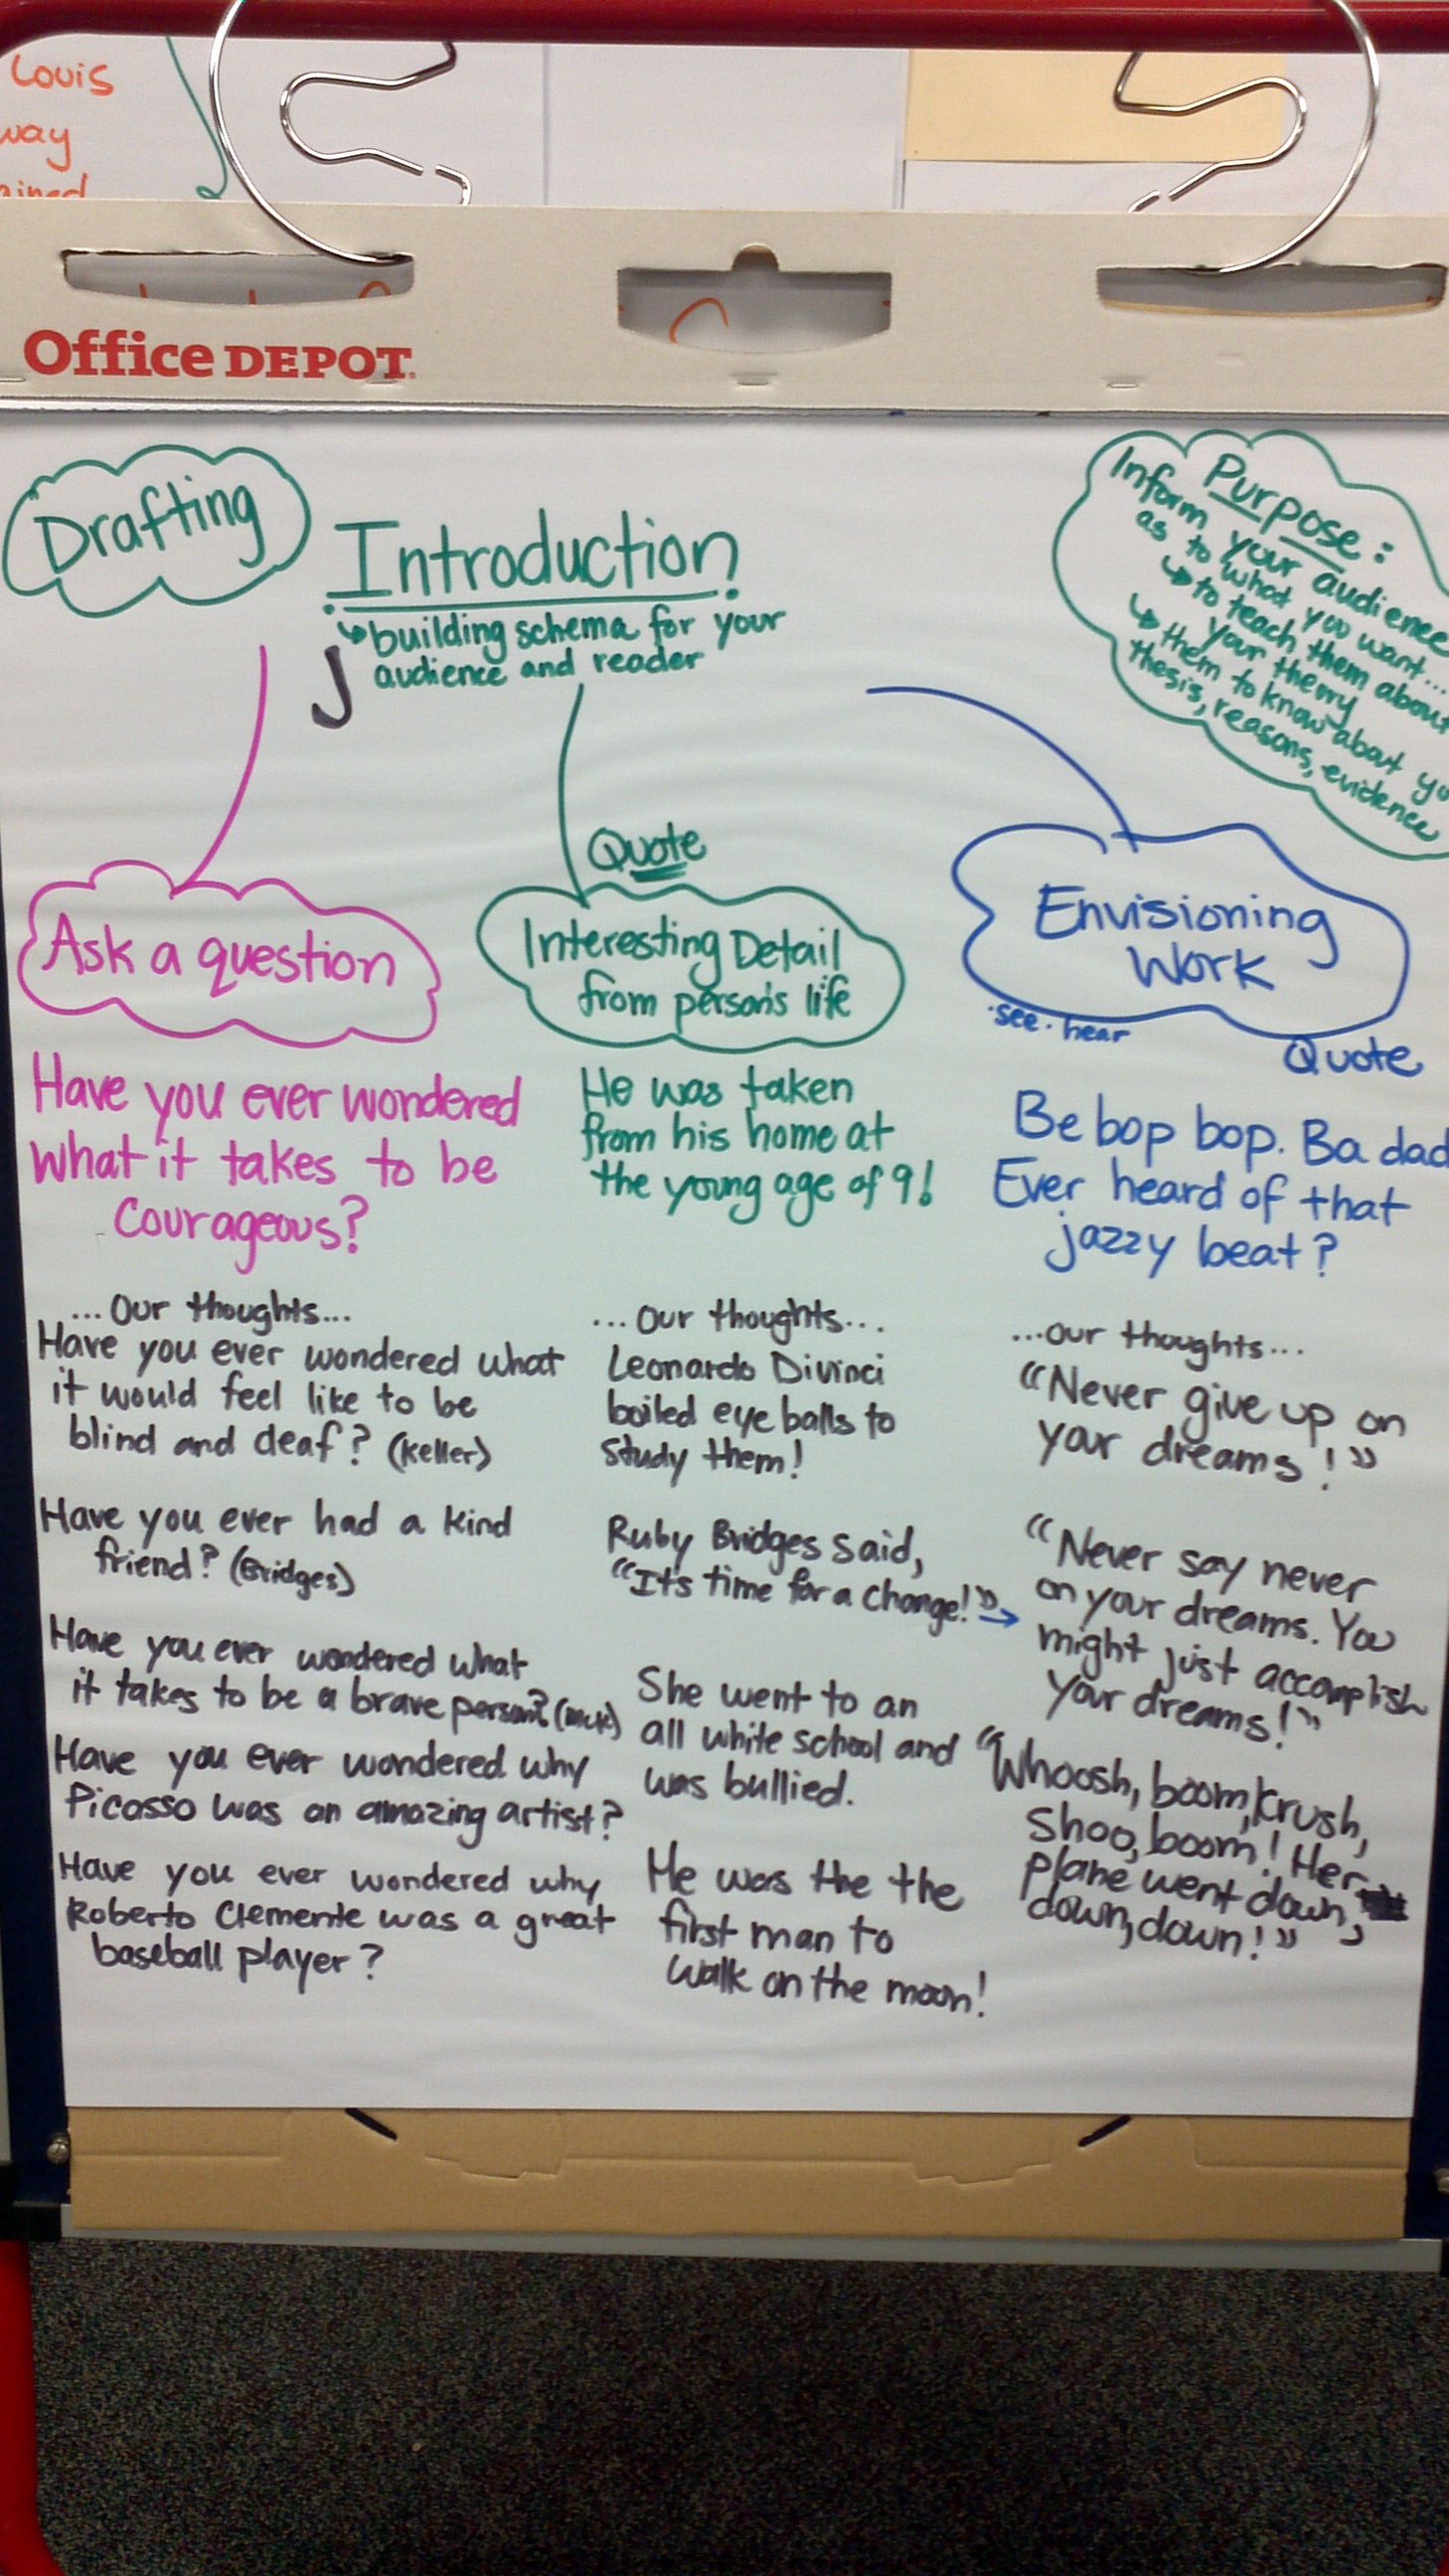 Louis
way
ained
Office DEPOT
Drafting
Introduction
building schema for your
audience and reader
J
Purpose:
Inform your audience
as to what you want...
to teach them about
your theory
them to know about
thesis, reasons, evidence
Ask a question
Have you ever wondered
what it takes to be
courageous?
...our thoughts...
Have you ever wondered what
it would feel like to be
blind and deaf? (Keller)
Have you ever had a kind
friend? (Bridges)
Have you ever wondered what
it takes to be a brave person?
Have you ever wondered why
Picasso was an amazing artist?
Have you ever wondered why
Roberto Clemente was a great
baseball player?
Quote
Interesting Detail
from person's life
He was taken
from his home at
the young age of 9!
...our thoughts...
Leonardo Divinci
boiled eye balls to
study them!
Ruby Bridges said,
"It's time for a change!"
She went to an
all white school and
was bullied.
He was the the
first man to
walk on the moon!
Envisioning
Work
·see ·hear
Quote
Be bop bop. Ba dad
Ever heard of that
jazzy beat?
...our thoughts...
"Never give up on
your dreams!"
"Never say never
on your dreams. You
might just accomplish
your dreams!"
"Whoosh, boom, krush,
Shoo, boom! Her
plane went down,
down, down!"